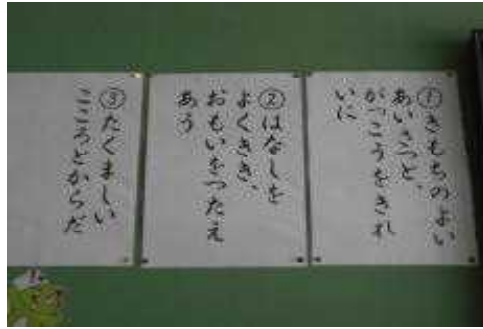 ①きもちのよい
あいさつと、
がっこうをきれ
いに
②はなしを
よくきき、
おもいをつたえ
あう
③たくましい
こころとからだ